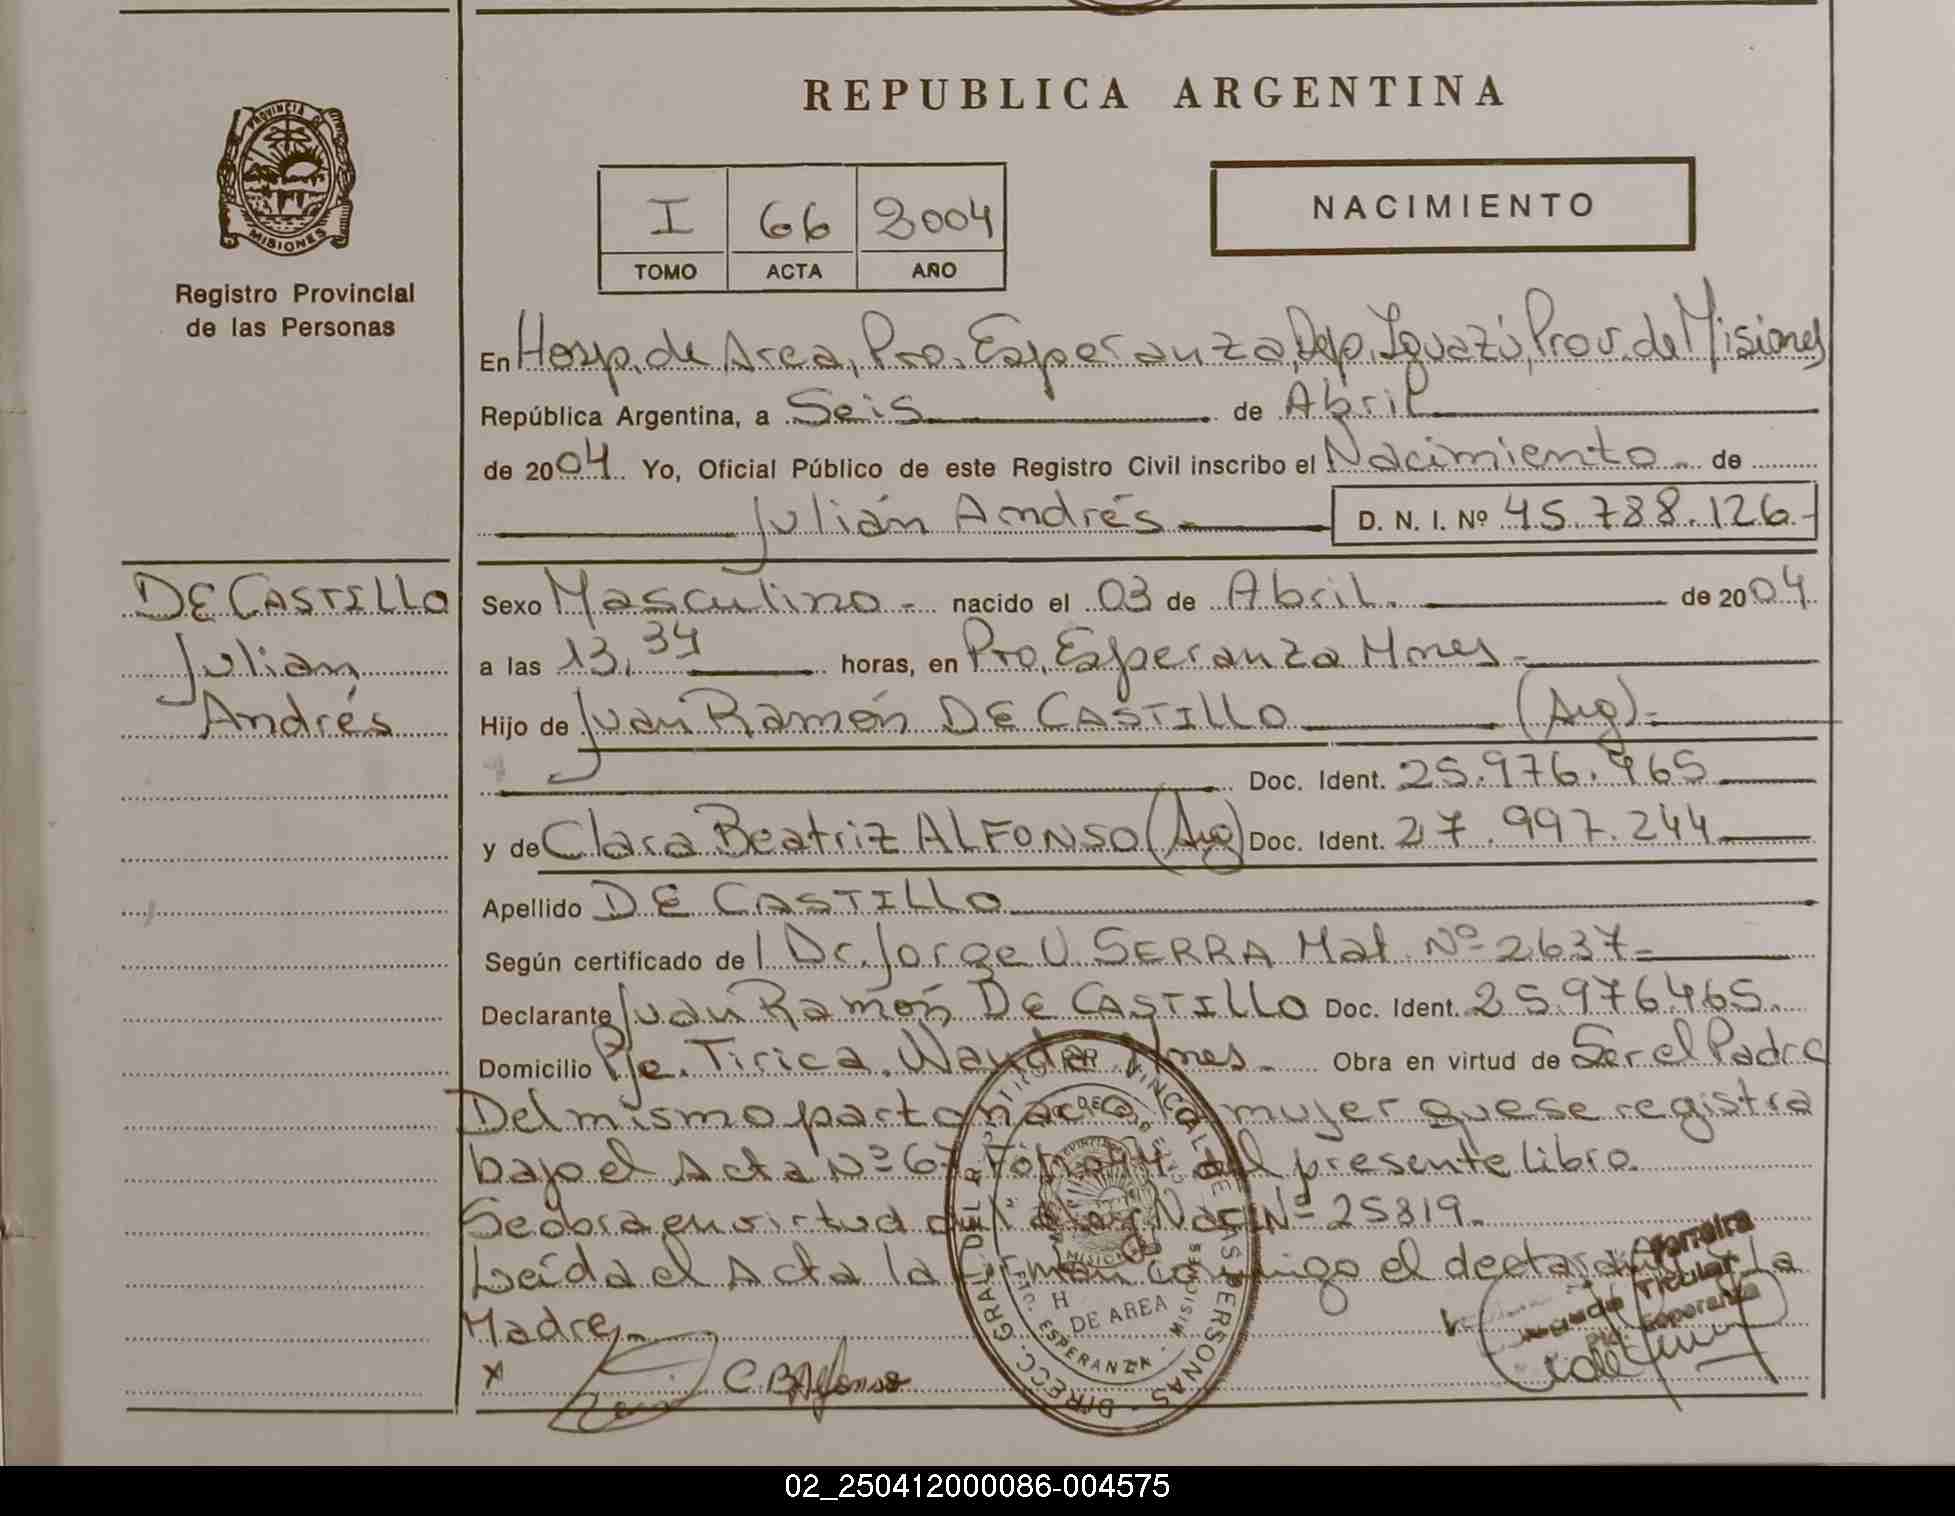 REPUBLICA ARGENTINA
PROVINCIA DE
MISIONES
Registro Provincial
de las Personas
I 66 2004
TOMO ACTA AÑO
NACIMIENTO
En Hosp. de Area, Pto. Esperanza, Dep. Iguazú, Prov. de Misiones
República Argentina, a Seis de Abril
de 2004 Yo, Oficial Público de este Registro Civil inscribo el Nacimiento de
Julián Andrés D. N. I. Nº 45.788.126.-
DE CASTILLO
Julian
Andrés
Sexo Masculino.- nacido el 03 de Abril. de 2004
a las 13,34 horas, en Pto. Esperanza Mnes.-
Hijo de Juan Ramón DE CASTILLO (Arg).-
Doc. Ident. 25.976.465
y de Clara Beatriz ALFONSO (Arg) Doc. Ident. 27.997.244
Apellido DE CASTILLO
Según certificado del Dr. Jorge U. SERRA Mat. Nº 2637.-
Declarante Juan Ramón DE CASTILLO Doc. Ident. 25.976.465.
Domicilio Pje. Tirica. Wanda Mnes.- Obra en virtud de Ser el Padre
Del mismo parto nació mujer que se registra
bajo el Acta Nº 67 del presente libro.
Se obra en virtud de la Ley Nac. Nº 25819.
Leída el Acta la firman conmigo el declarante y La
Madre.-
x C. B. Alfonso
DIRECC. GRAL. DEL R. PROVINCIAL DE LAS PERSONAS
MISIONES
H. DE AREA
ESPERANZA - MISIONES
Ferreira
Titular
Pto. Esperanza
02_250412000086-004575